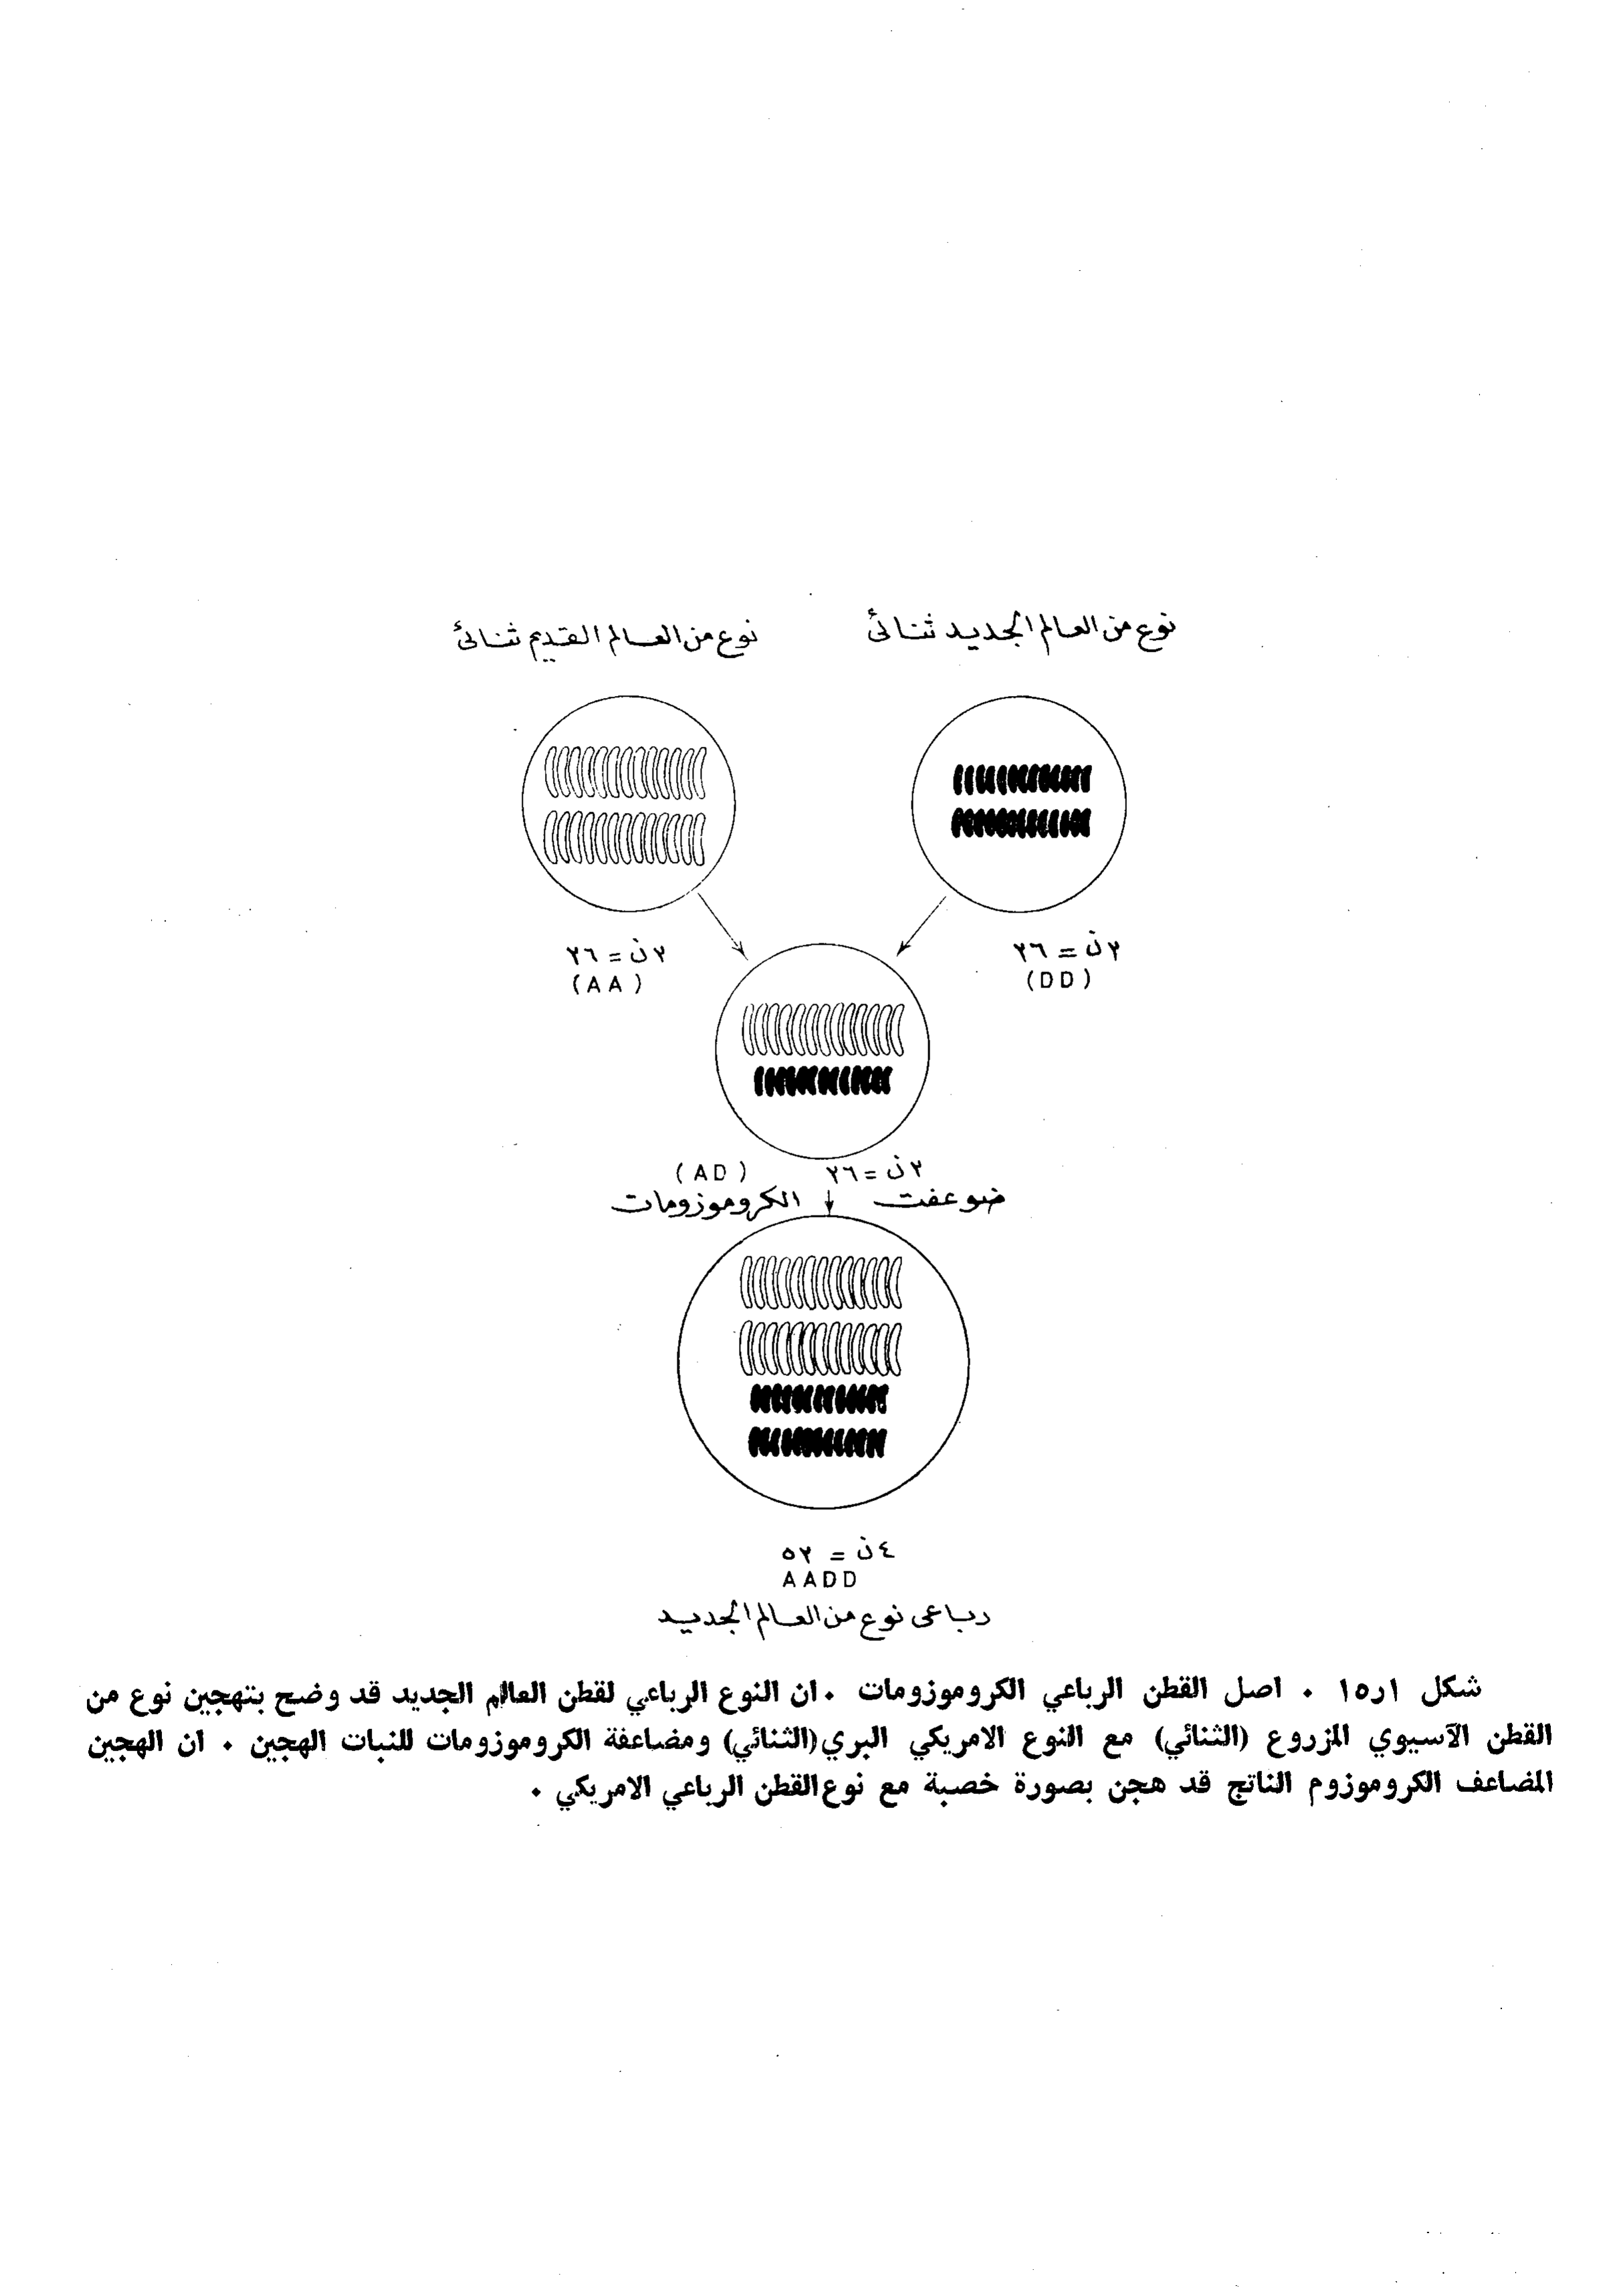 نوع من العالم الجديد ثنائى
نوع من العالم القديم ثنائى
٢ن = ٢٦
(DD)
٢ن = ٢٦
(AA)
٢ن = ٢٦ (AD)
ضوعفت الكروموزومات
٤ن = ٥٢
AADD
رباعى نوع من العالم الجديد
شكل ١ر١٥ . اصل القطن الرباعي الكروموزومات . ان النوع الرباعي لقطن العالم الجديد قد وضح بتهجين نوع من
القطن الآسيوي المزروع (الثنائي) مع النوع الامريكي البري (الثنائي) ومضاعفة الكروموزومات للنبات الهجين . ان الهجين
المضاعف الكروموزوم الناتج قد هجن بصورة خصبة مع نوع القطن الرباعي الامريكي .